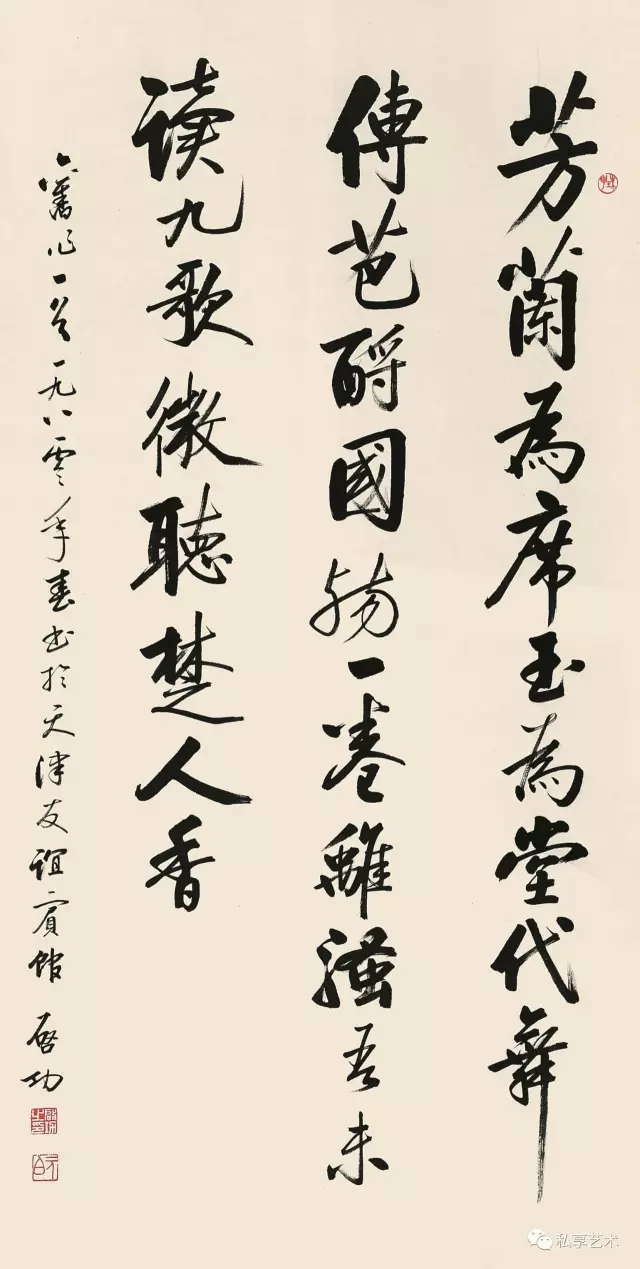 芳蘭為席玉為堂代舞
傳芭酹國殤一卷離騷吾未
读九歌微聽楚人香
舊作一首一九八零年春书於天津友誼賓館 啓功
私享艺术